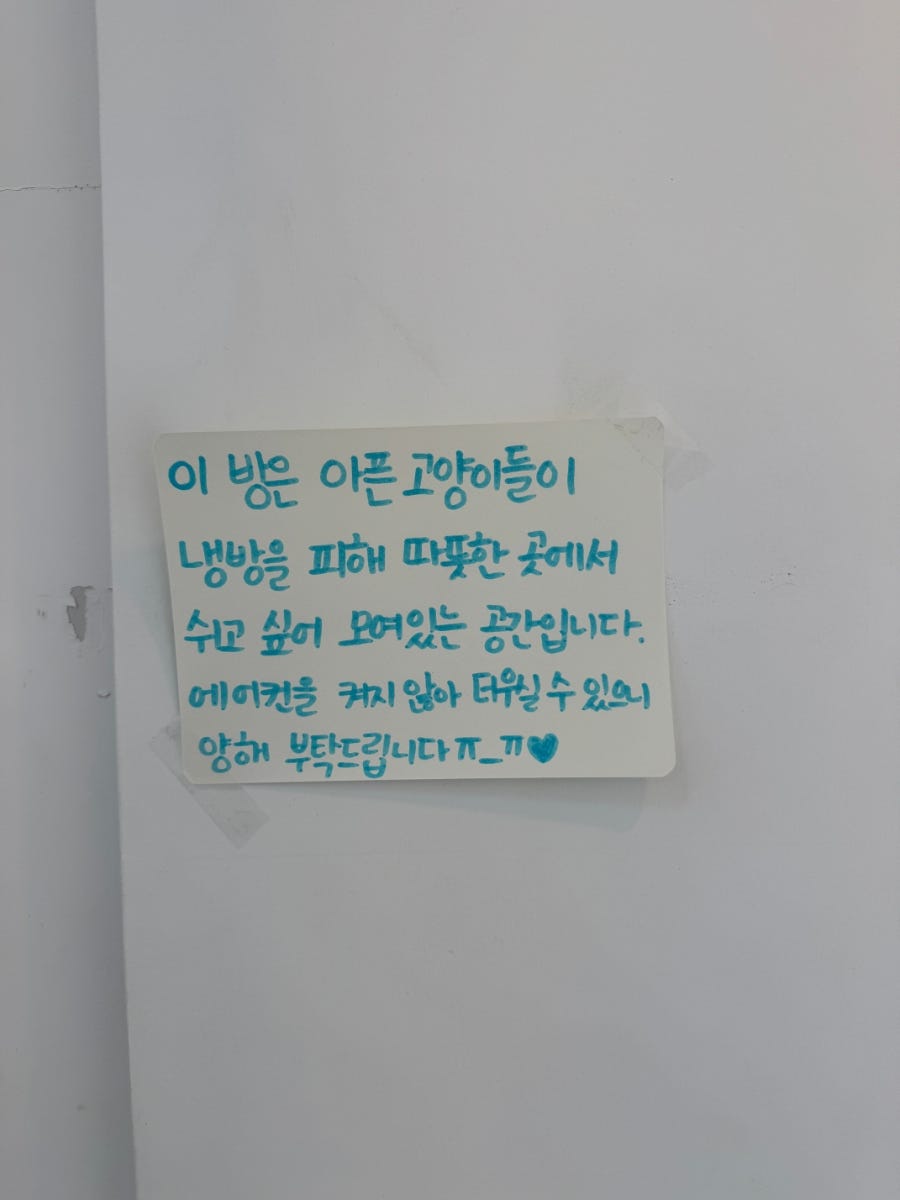 이 방은 아픈 고양이들이
냉방을 피해 따뜻한 곳에서
쉬고 싶어 모여있는 공간입니다.
에어컨을 켜지 않아 더우실 수 있으니
양해 부탁드립니다 ㅠ_ㅠ♥